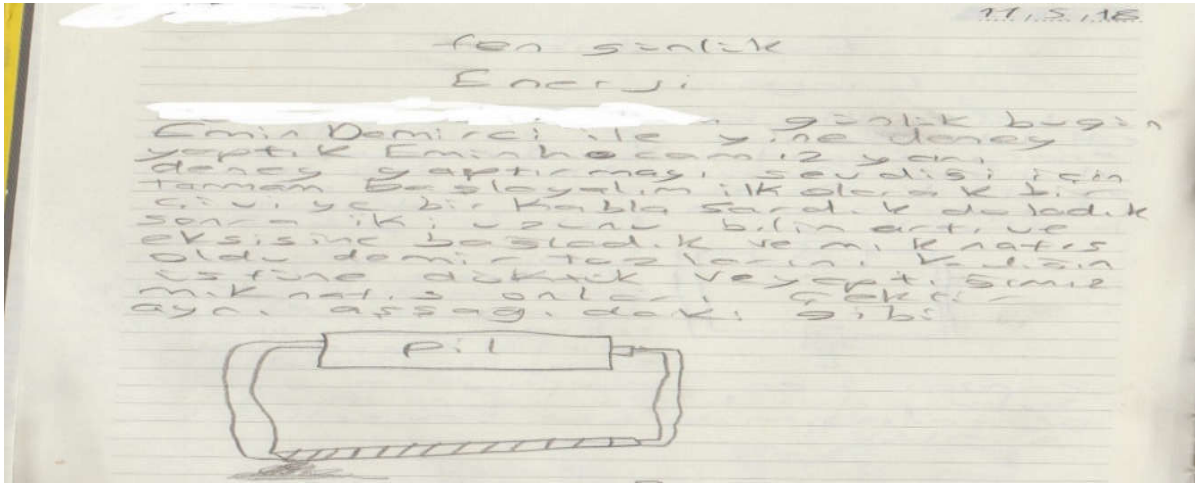 11.5.18
fen günlük
Enerji
günlük bugün
Emin Demirci ile yine deney
yaptık Emin hocamız yani
deney yaptırmayı sevdiği için
Tammam Başlayalım ilk olarak bir
çiviye bir Kabla Sardık doladık
sonra iki ucunu bilin artı ve
eksisine bağladık ve mıknatıs
oldu demir tozlarını Kağıdın
üstüne döktük ve yaptığımız
mıknatıs onları çekti
aynı assağıdaki gibi
pil